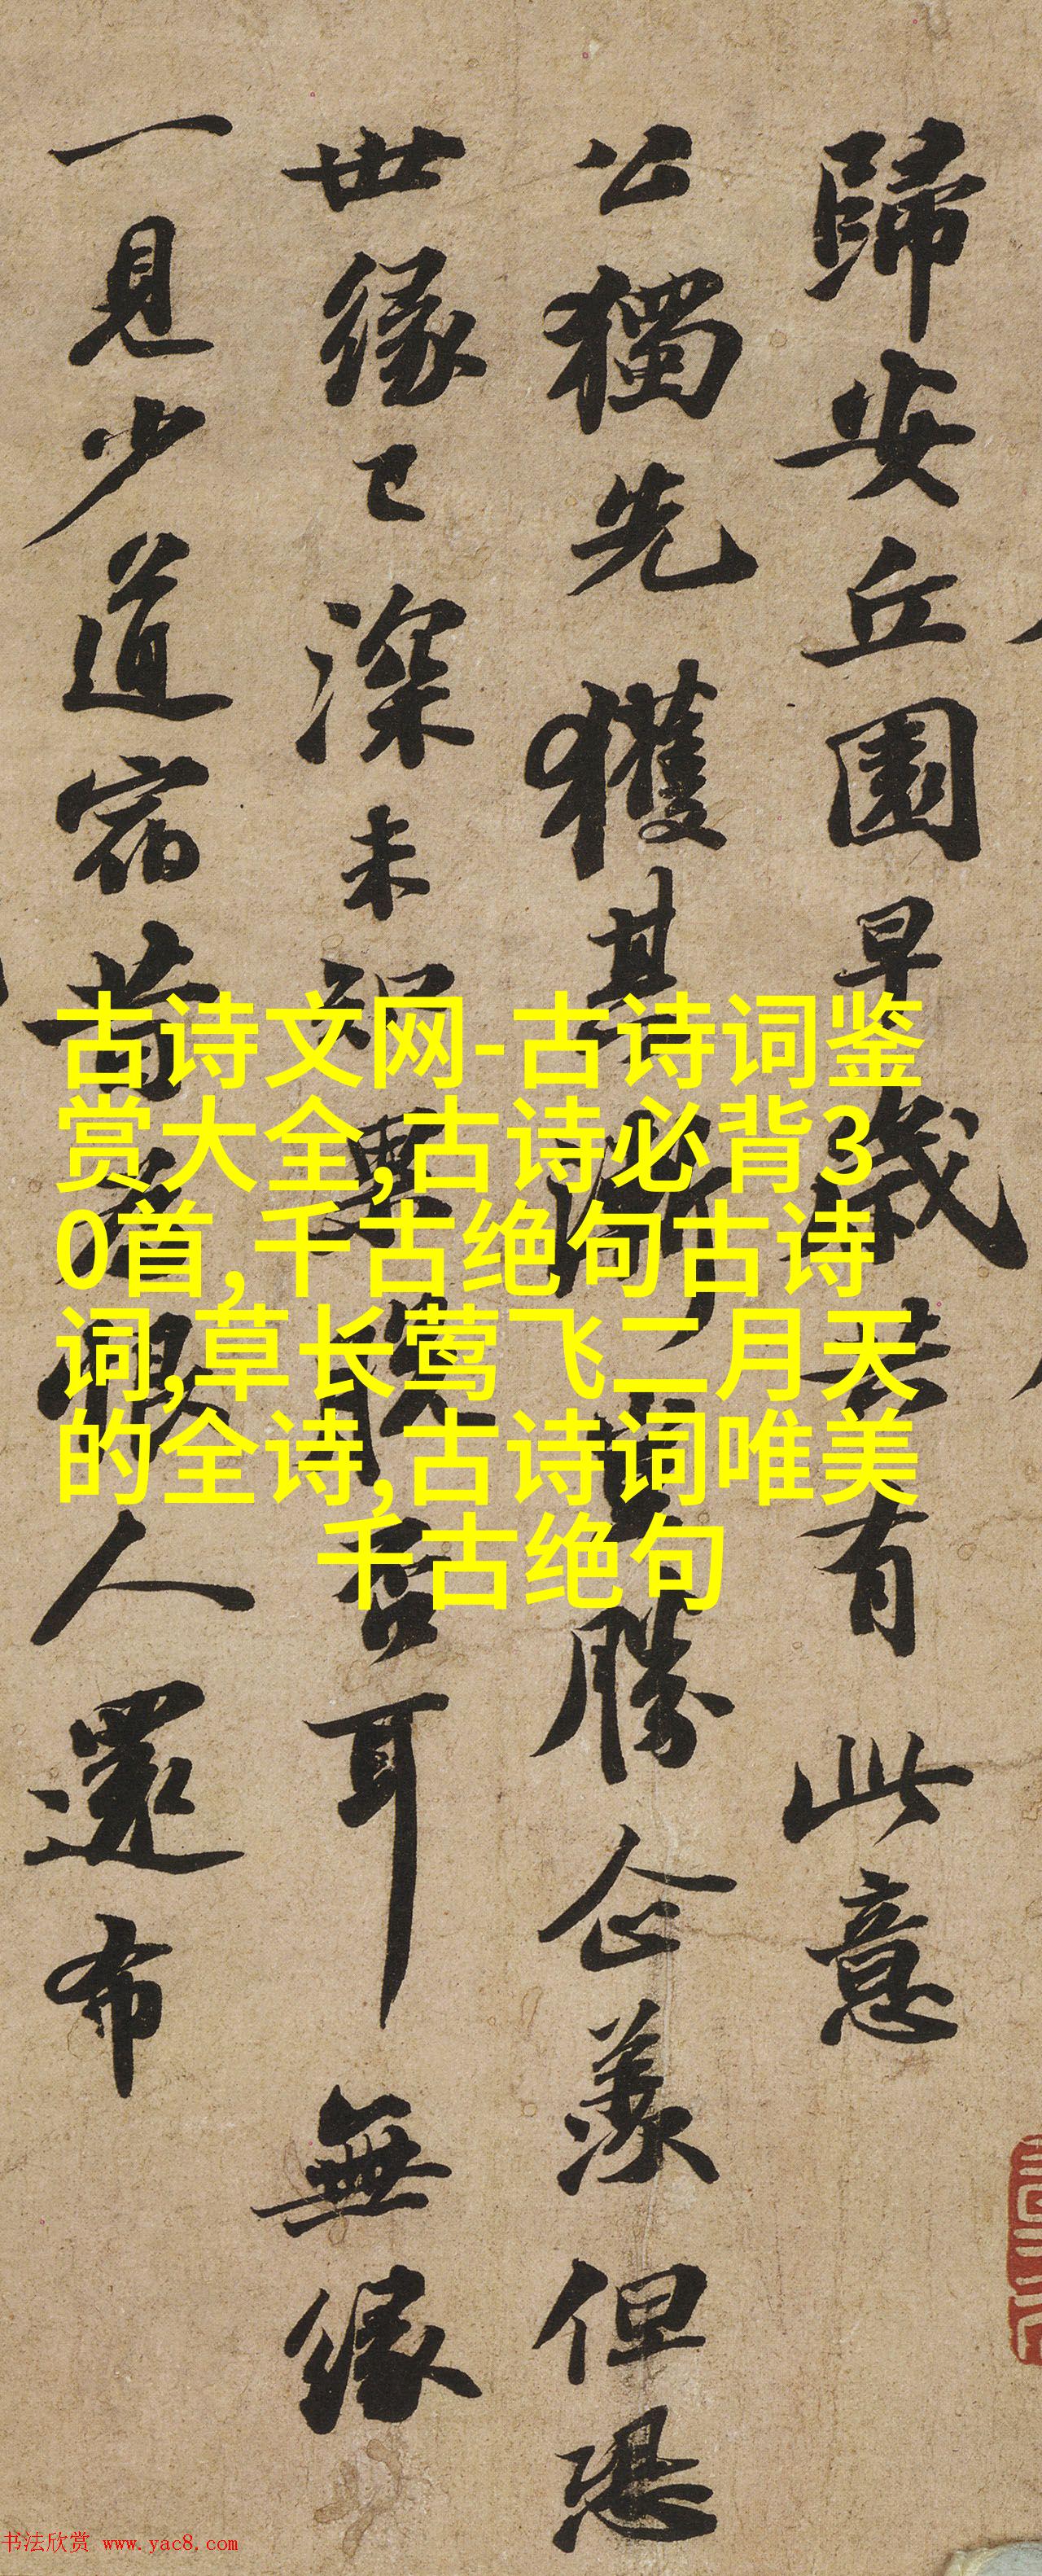 歸安丘園早歲共有此意
公獨先獲其漸豈勝企羨但恐
世緣已深未知果脫否耳無緣
一見少道宿昔為恨人還布
古诗文网-古诗词鉴
赏大全,古诗必背3
0首,千古绝句古诗
词,草长莺飞二月天
的全诗,古诗词唯美
千古绝句
书法欣赏 www.yac8.com